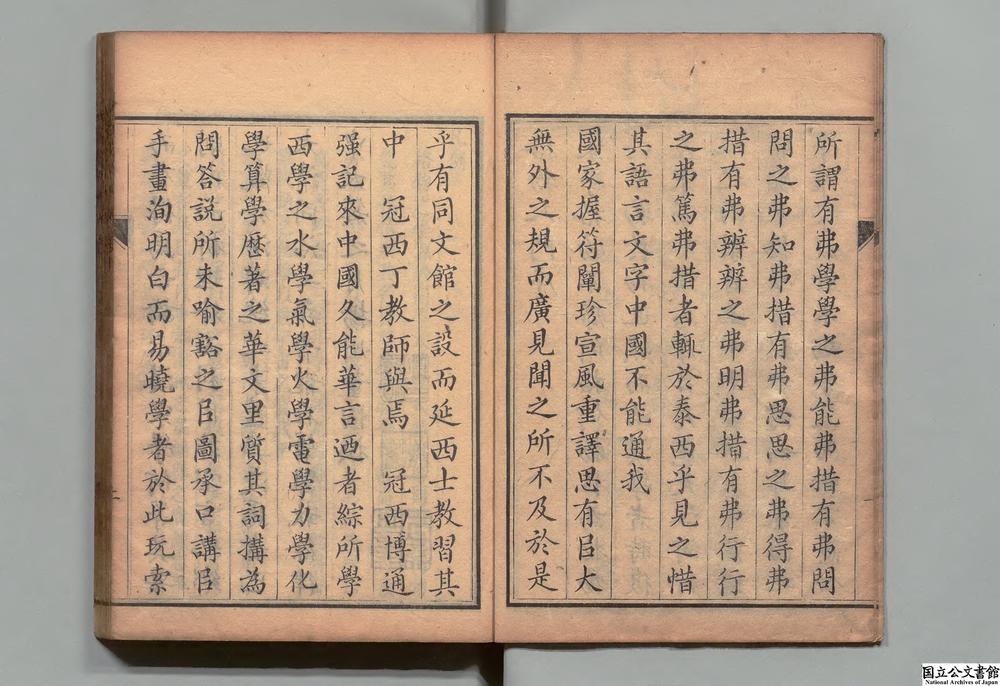 所謂有弗學學之弗能弗措有弗問
問之弗知弗措有弗思思之弗得弗
措有弗辨辨之弗明弗措有弗行行
之弗篤弗措者輒於泰西乎見之惜
其語言文字中國不能通我
國家握符闡珍宣風重譯思有㠯大
無外之規而廣見聞之所不及於是
乎有同文館之設而延西士教習其
中 冠西丁教師與焉 冠西博通
强記來中國久能華言迺者綜所學
西學之水學氣學火學電學力學化
學算學歷著之華文里質其詞搆為
問答說所未喻豁之㠯圖承口講㠯
手畫洵明白而易曉學者於此玩索
二
一
国立公文書館
National Archives of Japan